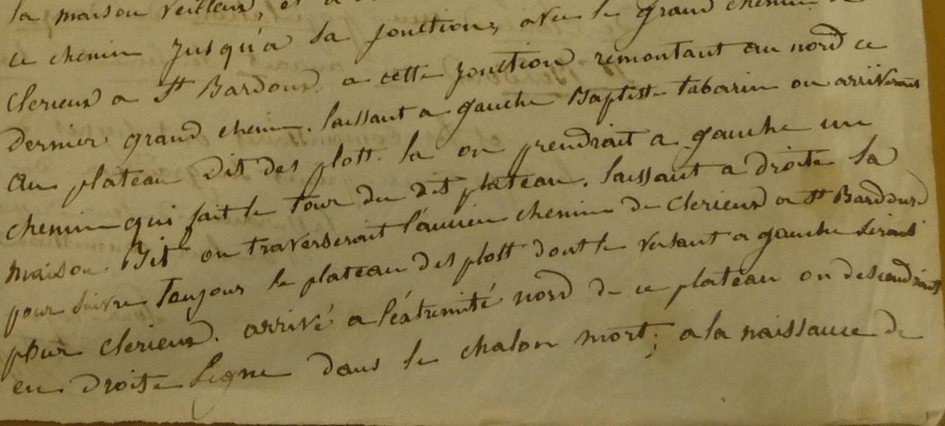 la maison veilleux, et
ce chemin jusqu'a sa jonction, avec le grand chemin de
clerieux a St Bardoux a cette jonction remontant au nord ce
dernier grand chemin. laissant a gauche Baptiste tabarin on arriverait
au plateau dit des plott. la on prendrait a gauche un
chemin qui fait le tour du dit plateau. laissant a droite la
maison Git on traverserait l'ancien chemin de clerieux a St Bardoux
pour suivre toujours le plateau des plott dont le versant a gauche serait
pour clerieux. arrivé a l'extremité nord de ce plateau on descendrait
en droite ligne dans le chalon mort; a la naissance de